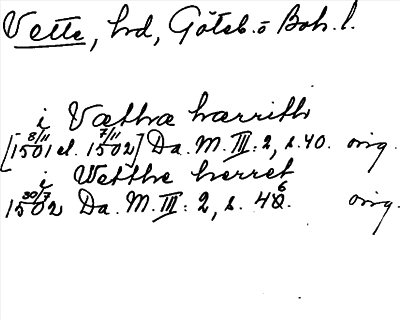 Vette, hd, Göteb. o Boh. l.
i Væthæ hærrith
[1501 8/11 el. 1502 7/11] Da. M. III: 2, s. 40. orig.
i Wetthe herret
1502 30/7 Da. M. III: 2, s. 46. orig.